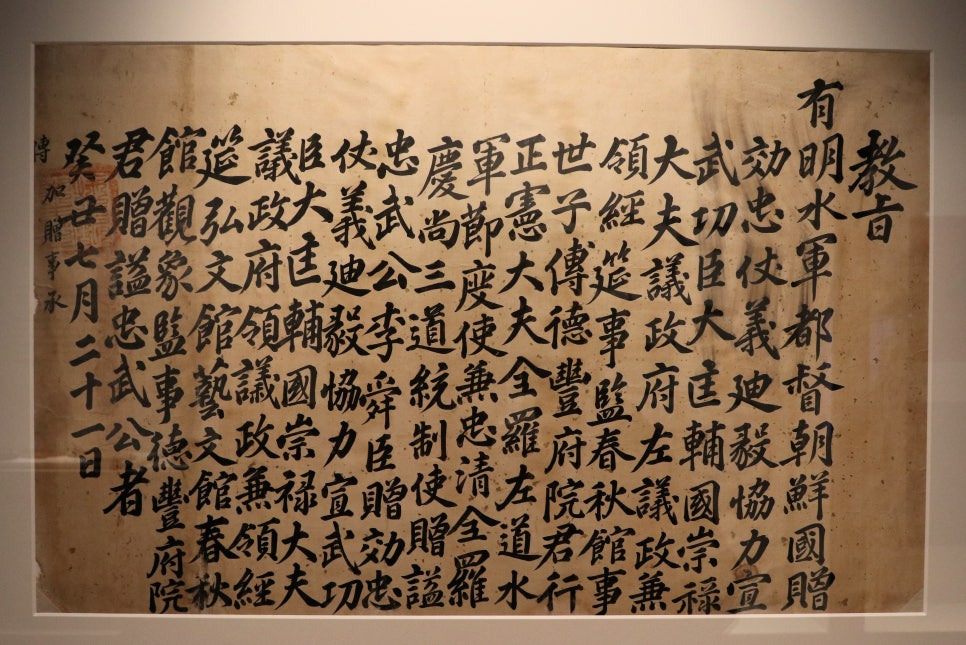 教旨
有明水軍都督朝鮮國贈
効忠仗義廸毅協力宣
武功臣大匡輔國崇禄
大夫議政府左議政兼
領經筵事監春秋館事
世子傅德豐府院君行
正憲大夫全羅左道水
軍節度使兼忠清全羅
慶尚三道統制使贈謚
忠武公李舜臣贈効忠
仗義廸毅協力宣武功
臣大匡輔國崇禄大夫
議政府領議政兼領經
筵弘文館藝文館春秋
館觀象監事德豐府院
君贈謚忠武公者
癸丑七月二十一日
加贈事承
傳